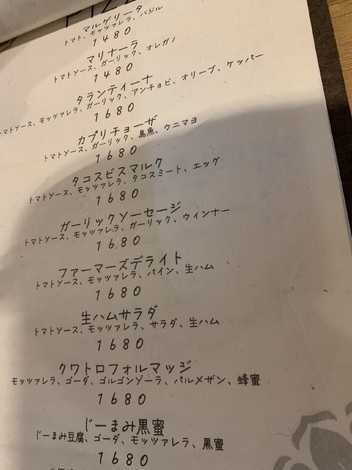 マルゲリータ
トマト、モッツァレラ、バジル
1480
マリナーラ
トマトソース、ガーリック、オレガノ
1480
タランティーナ
トマトソース、モッツァレラ、ガーリック、アンチョビ、オリーブ、ケッパー
1680
カプリチョーザ
トマトソース、ガーリック、島魚、ウニマヨ
1680
タコスビスマルク
トマトソース、モッツァレラ、タコスミート、エッグ
1680
ガーリックソーセージ
トマトソース、モッツァレラ、ガーリック、ウィンナー
1680
ファーマーズデライト
トマトソース、モッツァレラ、パイン、生ハム
1680
生ハムサラダ
トマトソース、モッツァレラ、サラダ、生ハム
1680
クワトロフォルマッジ
モッツァレラ、ゴーダ、ゴルゴンゾーラ、パルメザン、蜂蜜
1680
じーまみ黒蜜
じーまみ豆腐、ゴーダ、モッツァレラ、黒蜜
1680